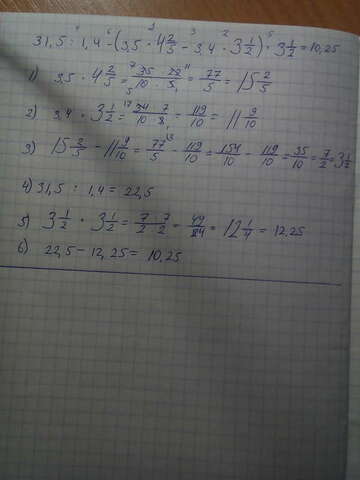 31,5 : 1,4 - (3,5 · 4 2/5 - 3,4 · 3 1/2) · 3 1/2 = 10,25
1) 3,5 · 4 2/5 = 35/10 · 22/5 = 77/5 = 15 2/5
2) 3,4 · 3 1/2 = 34/10 · 7/2 = 119/10 = 11 9/10
3) 15 2/5 - 11 9/10 = 77/5 - 119/10 = 154/10 - 119/10 = 35/10 = 7/2 = 3 1/2
4) 31,5 : 1,4 = 22,5
5) 3 1/2 · 3 1/2 = 7/2 · 7/2 = 49/4 = 12 1/4 = 12.25
6) 22,5 - 12,25 = 10,25